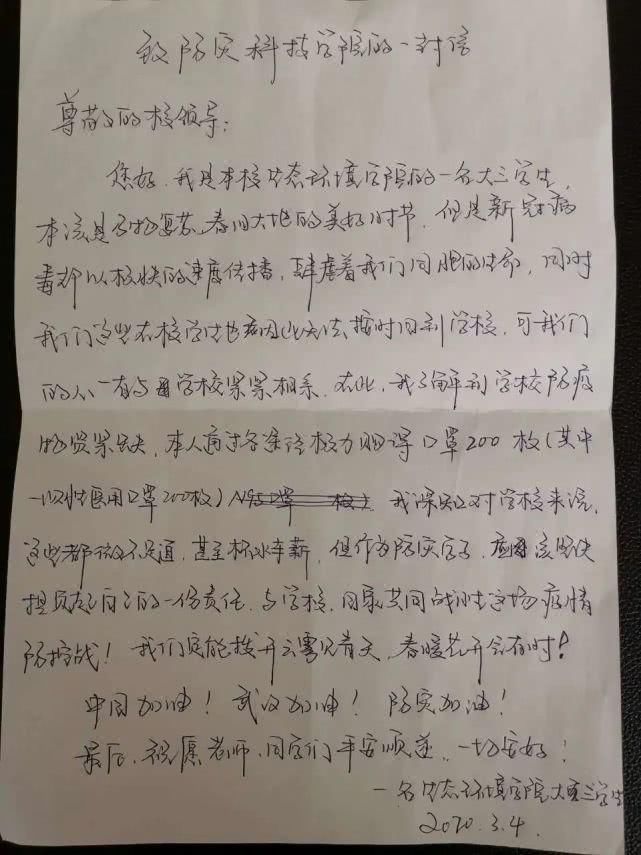 致防灾科技学院的一封信
尊敬的校领导：
您好，我是本校生态环境学院的一名大三学生，
本该是万物复苏、春回大地的美好时节，但是新冠病
毒却以极快的速度传播，肆虐着我们同胞的生命，同时
我们这些在校学生也病因此无法按时回到学校，可我们
的心一直与学校紧紧相系。在此，我了解到学校防疫
物资紧缺，本人通过各途径极力购得口罩200枚（其中
一次性医用口罩200枚）N95口罩 枚）。我深知对学校来说，
这些都微不足道，甚至杯水车薪，但作为防灾学子，应该坚决
担负起自己的一份责任，与学校、国家共同战胜这场疫情
防控战！我们定能拨开云雾见青天，春暖花开会有时！
中国加油！武汉加油！防灾加油！
最后，祝愿老师、同学们平安顺遂，一切安好！
一名生态环境学院大三学生
2020.3.4.